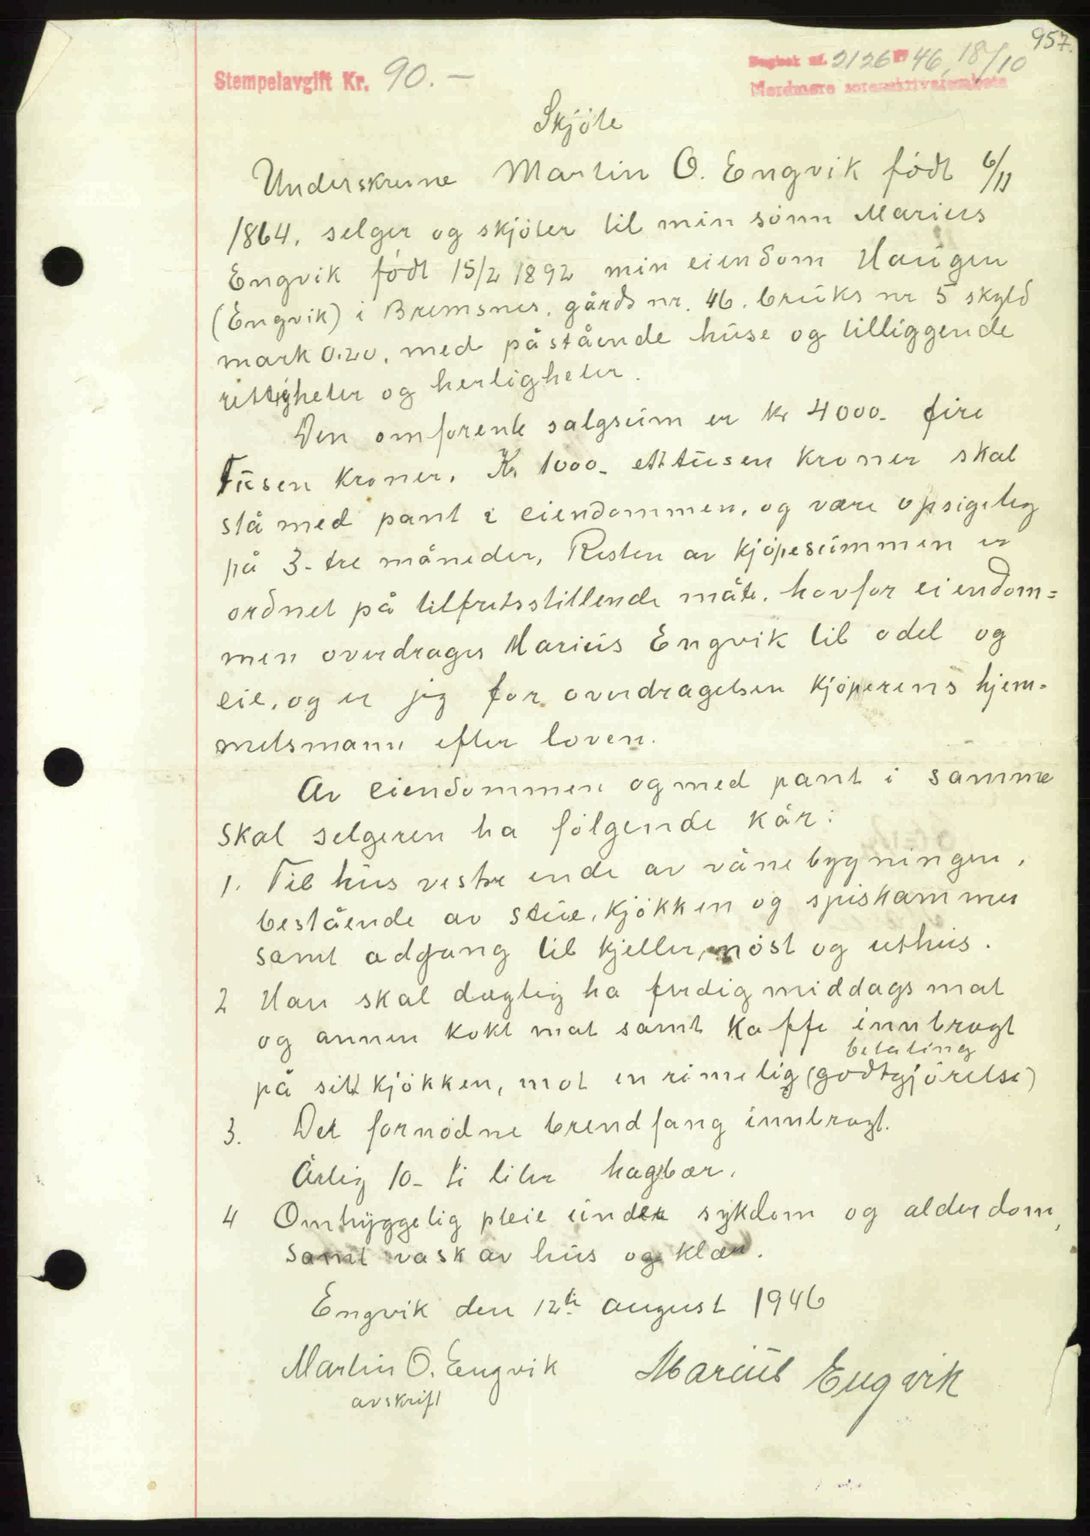 957.
Stempelavgift Kr. 90.-
Dagbok nr. 2126 46, 18/10
Nordmøre sorenskriverembete
Skjöte
Underskrevne Martin O. Engvik född 6/11
1864, selger og skjöter til min sönn Marius
Engvik född 15/2 1892 min eiendom Haugen
(Engvik) i Bremsnes, gårds nr. 46. bruks nr 5 skyld
mark 0.20, med påstående huse og tilliggende
rettigheter og herligheter.
Den omforente salgsum er kr 4000- fire
Tusen kroner. Kr 1000- ett tusen kroner skal
stå med pant i eiendommen, og være opsigelig
på 3- tre måneder, Resten av kjöpesummen er
ordnet på tilfretsstillende måte. hvorfor eiendom=
men overdrages Marius Engvik til odel og
eie, og er jeg for overdragelsen kjöperens hjem-
melsmann efter loven.
Av eiendommen og med pant i samme
skal selgeren ha fölgende kår:
1. Til hus vestre ende av vånebygningen,
bestående av stue, kjökken og spiskammer
samt adgang til kjeller, nöst og uthus.
2 Han skal daglig ha ferdig middagsmat
og annen kokt mat samt kaffe innbragt
betaling
på sitt kjökken, mot en rimelig (godtgjörelse)
3. Det fornödne brendfang innbragt.
Årlig 10- ti liter hagebær.
4 Omhyggelig pleie under sykdom og alderdom,
samt vask av hus og klær.
Engvik den 12te august 1946
Martin O. Engvik Marius Engvik
avskrift